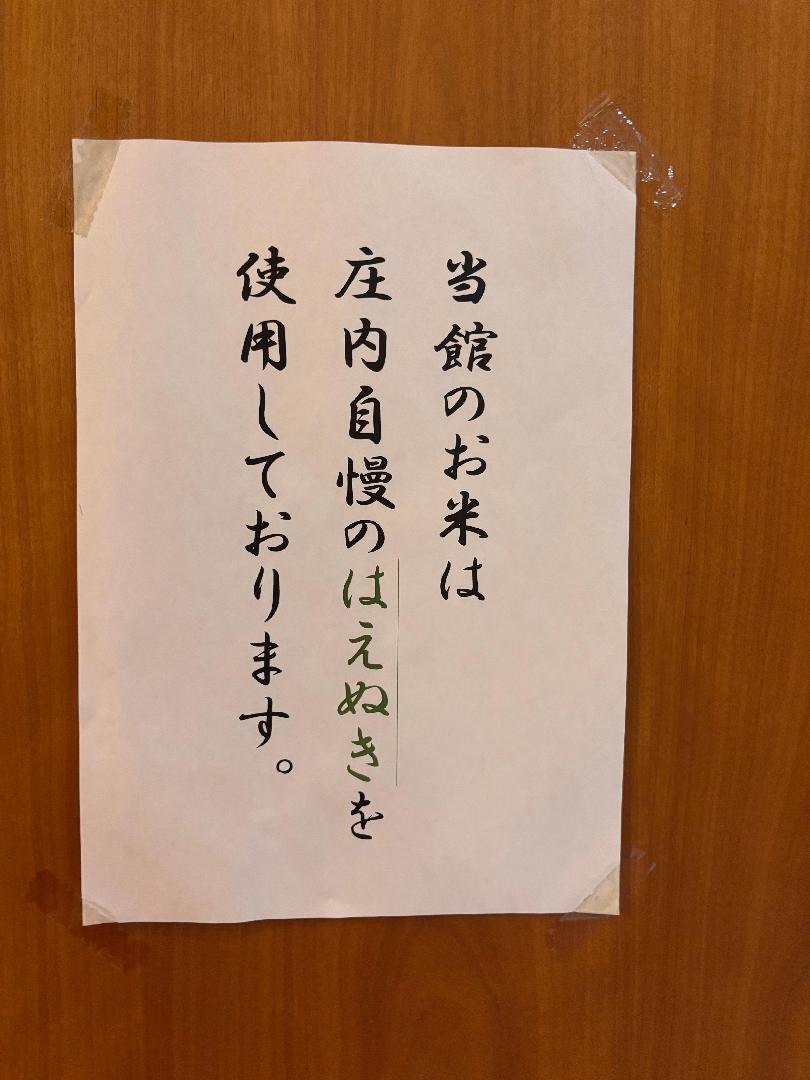 当館のお米は
庄内自慢のはえぬきを
使用しております。